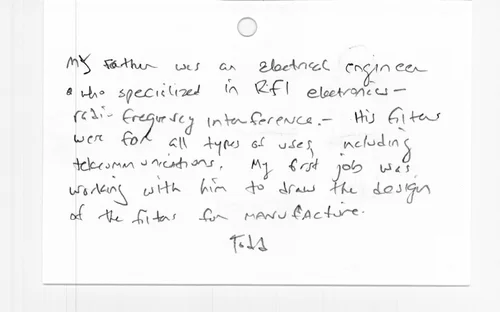 My Father was an electrical engineer
who specialized in RFI electronics -
radi- frequency interference. - His filters
were for all types of uses including
telecommunications. My first job was
working with him to draw the design
of the filters for MANUFACTURE.
Todd